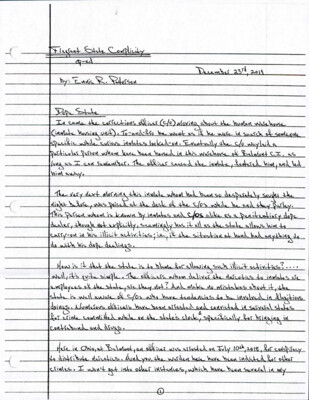 Flagrant State Complicity
op-ed
December 23rd, 2019
By: Ennis R.
Dope State
In came the corrections officer (c/o) moving about the human warehouse
(inmate housing unit). To-and-fro he went as if he was in search of someone
specific while curious inmates looked on. Eventually the c/o waylaid a
particular person whom have been housed in this warehouse at Belmont C.I., as
long as I can remember. The officer cuffed the inmate, and led
him away.
The very next morning this inmate whom had been so desperately sought the
night before, was posted at the desk of the c/o's while he and they parley.
This person whom is known by inmates and c/os alike as a penitentiary dope
dealer, though not explicitly, seemingly has it all as the state allows him to
carry-on in his illicit activities; i.e., if the situation at hand had anything to
do with his dope dealings.
How is it that the state is to blame for allowing such illicit activities?....
well, it's quite simple. The officers whom deliver the narcotics to inmates are
employees of the state, are they not? And make no mistakes about it, the
state is well aware of c/os who have tendencies to be involved in
doings. Numerous officers have been arrested and convicted in several states
for crime committed while on the state's clock, specifically for bringing in
contraband, and drugs.
Here in Ohio, at Belmont, an officer was arrested on July 10th, 2018, for conspiracy
to distribute narcotics. And, yes, the wardens here have been indicted for other
crimes. I won't get into other instances, which have been several in my
1